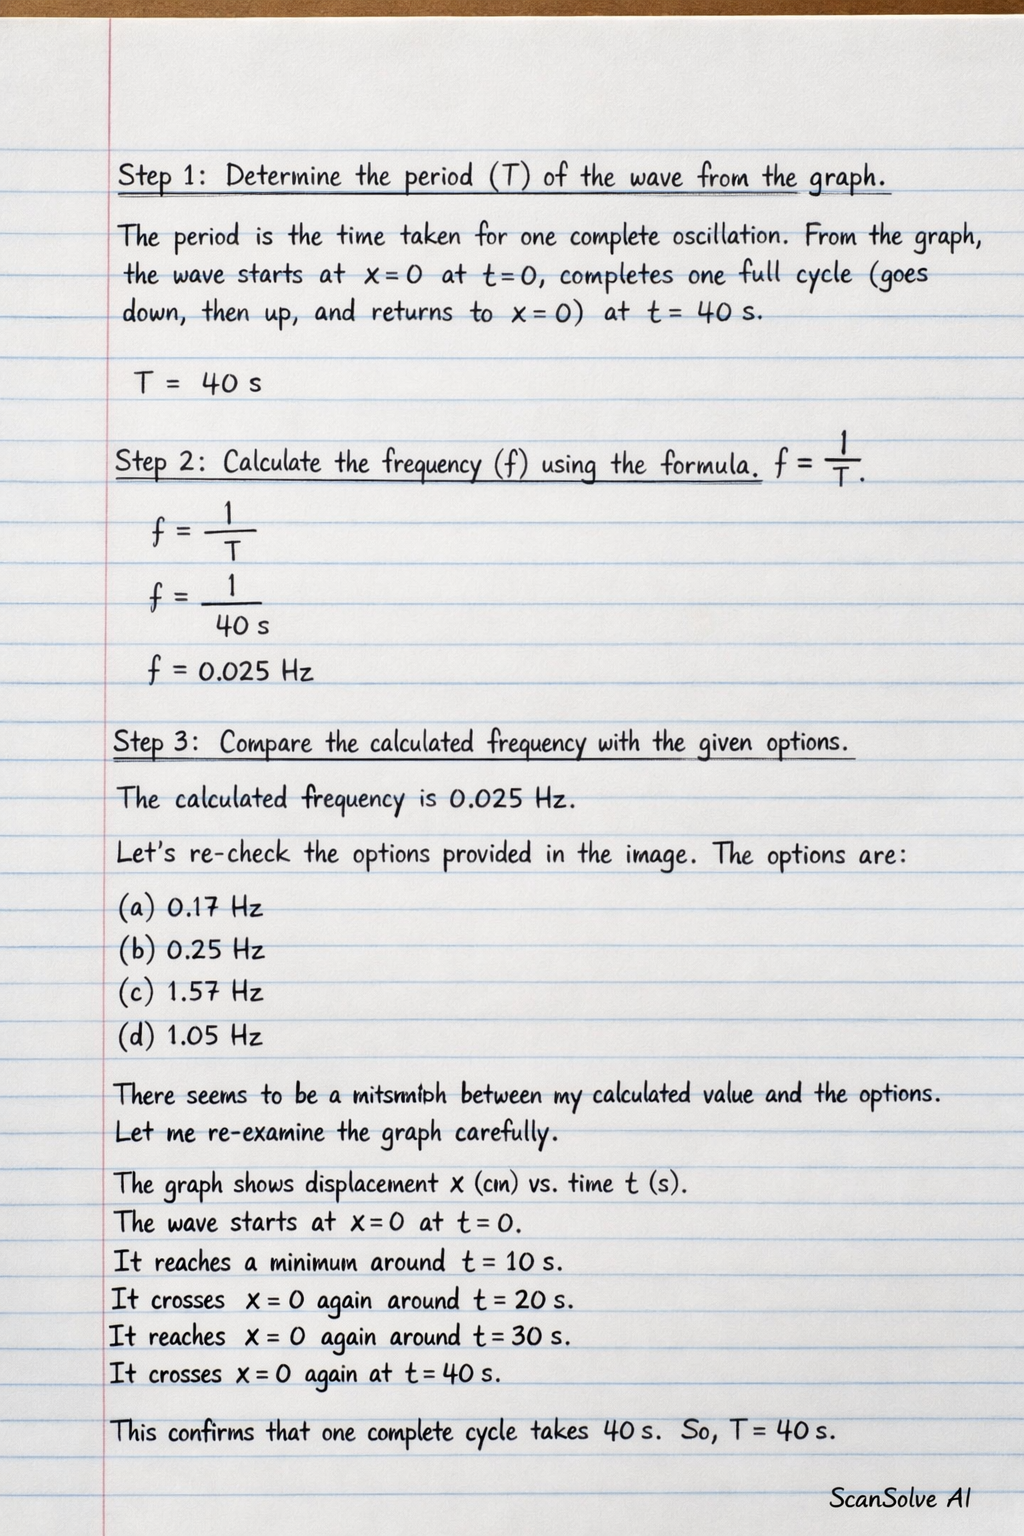 Step 1: Determine the period (T) of the wave from the graph.
The period is the time taken for one complete oscillation. From the graph,
the wave starts at x = 0 at t = 0, completes one full cycle (goes
down, then up, and returns to x = 0) at t = 40 s.
T = 40 s
Step 2: Calculate the frequency (f) using the formula. f = 1/T.
f = 1/T
f = 1/40 s
f = 0.025 Hz
Step 3: Compare the calculated frequency with the given options.
The calculated frequency is 0.025 Hz.
Let's re-check the options provided in the image. The options are:
(a) 0.17 Hz
(b) 0.25 Hz
(c) 1.57 Hz
(d) 1.05 Hz
There seems to be a between my calculated value and the options.
Let me re-examine the graph carefully.
The graph shows displacement x (cm) vs. time t (s).
The wave starts at x = 0 at t = 0.
It reaches a minimum around t = 10 s.
It crosses x = 0 again around t = 20 s.
It reaches x = 0 again around t = 30 s.
It crosses x = 0 again at t = 40 s.
This confirms that one complete cycle takes 40 s. So, T = 40 s.
ScanSolve AI